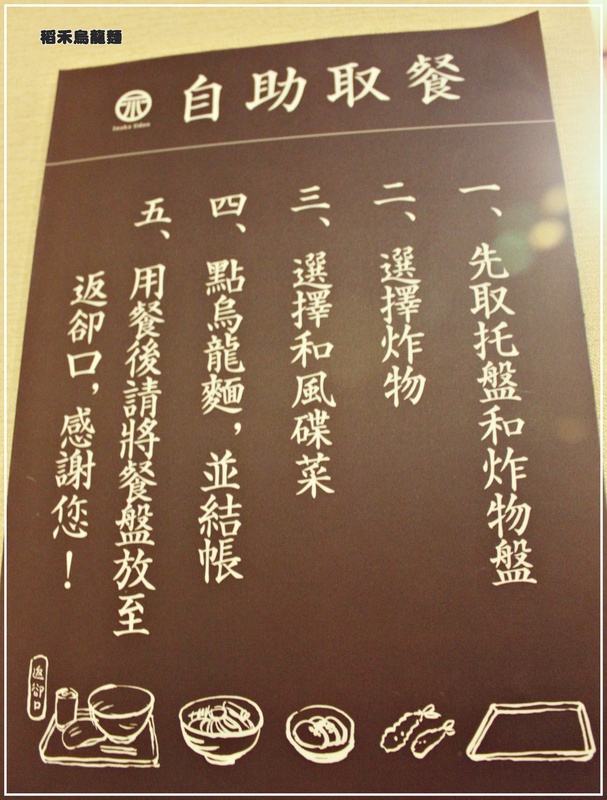 稻禾烏龍麵
Inaka Udon
自助取餐
一、先取托盤和炸物盤
二、選擇炸物
三、選擇和風碟菜
四、點烏龍麵，並結帳
五、用餐後請將餐盤放至
返卻口，感謝您！
返卻口